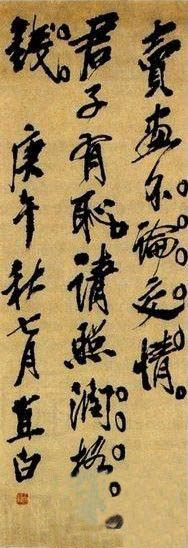 賣畫不論交情。
君子有恥。請照潤格
錢。庚午秋七月直白